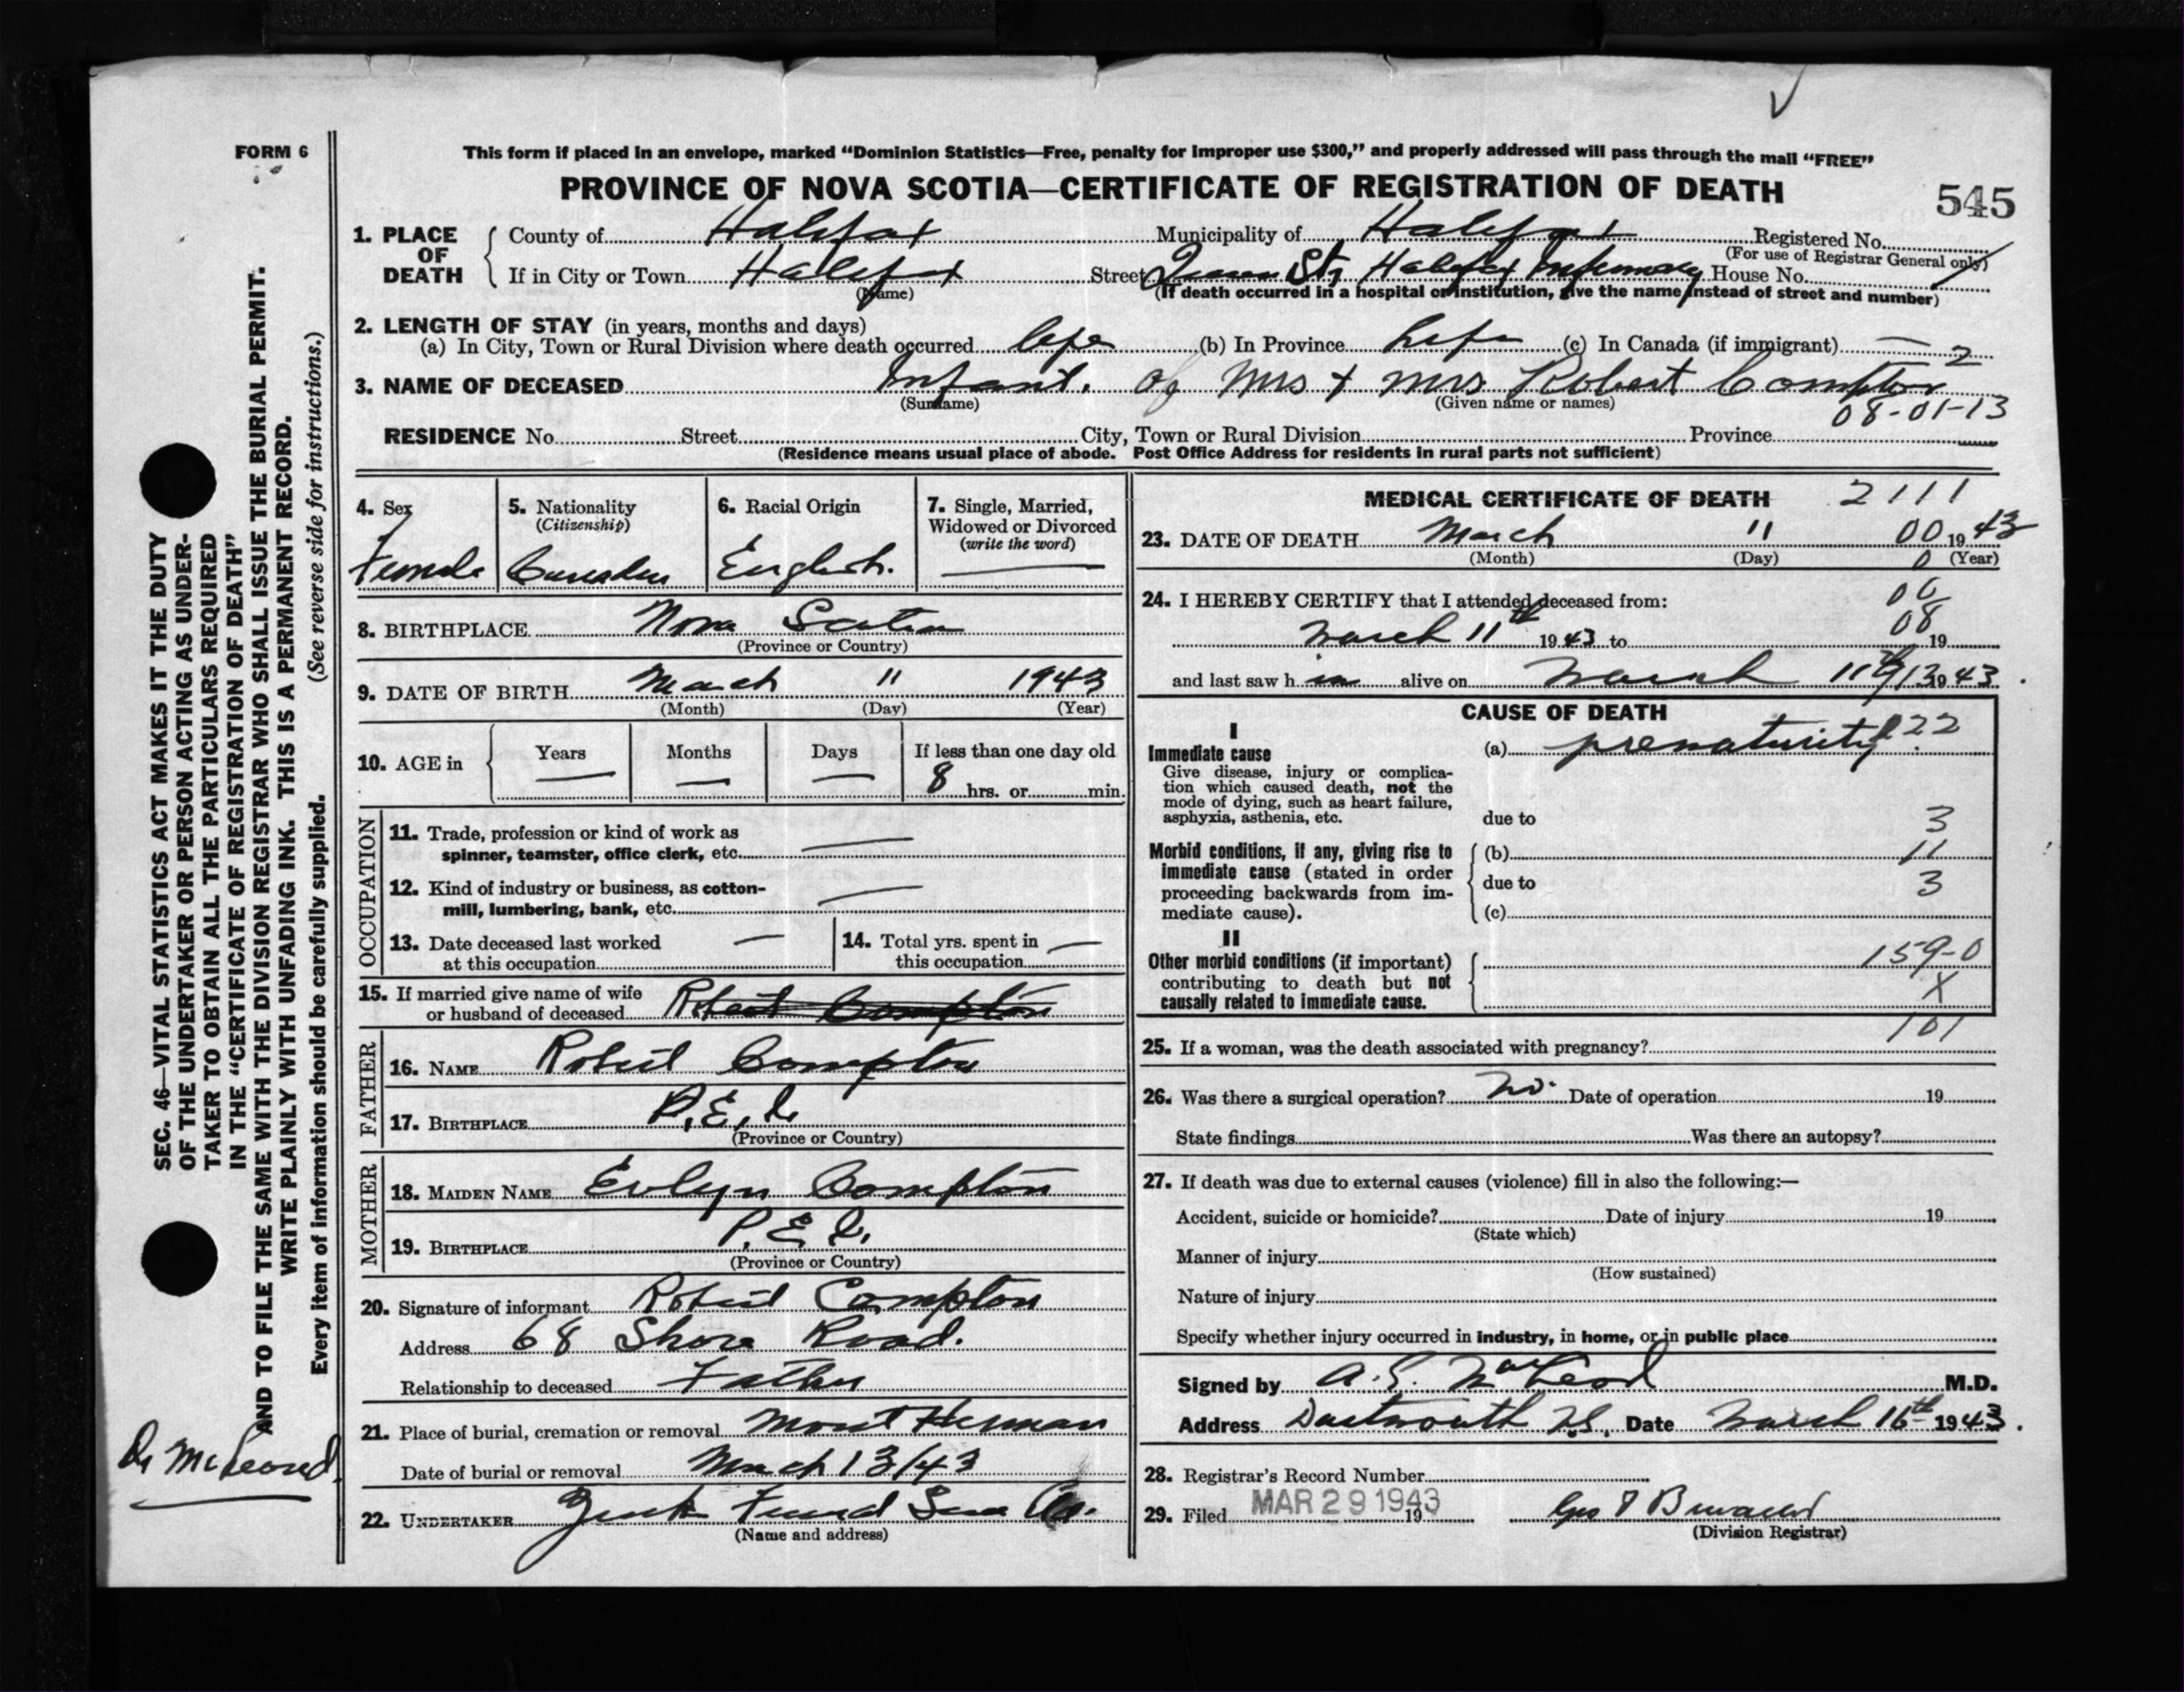 FORM 6
This form if placed in an envelope, marked “Dominion Statistics—Free, penalty for improper use $300,” and properly addressed will pass through the mail “FREE”
PROVINCE OF NOVA SCOTIA—CERTIFICATE OF REGISTRATION OF DEATH
545
1. PLACE OF DEATH
County of Halifax Municipality of Halifax Registered No.
(For use of Registrar General only)
If in City or Town Halifax Street St, Halifax Infirmary House No.
(Name) (If death occurred in a hospital or institution, give the name instead of street and number)
2. LENGTH OF STAY (in years, months and days)
(a) In City, Town or Rural Division where death occurred life (b) In Province life (c) In Canada (if immigrant) —
2
3. NAME OF DECEASED Infant. of Mrs + Mrs Robert Compton
(Surname) (Given name or names)
08-01-13
RESIDENCE No. Street City, Town or Rural Division Province
(Residence means usual place of abode. Post Office Address for residents in rural parts not sufficient)
4. Sex
Female
5. Nationality
(Citizenship)
Canadian
6. Racial Origin
English.
7. Single, Married, Widowed or Divorced
(write the word)
—
8. BIRTHPLACE Nova Scotia
(Province or Country)
9. DATE OF BIRTH March 11 1943
(Month) (Day) (Year)
10. AGE in Years Months Days If less than one day old
— — — 8 hrs. or min.
OCCUPATION
11. Trade, profession or kind of work as
spinner, teamster, office clerk, etc. —
12. Kind of industry or business, as cotton-
mill, lumbering, bank, etc. —
13. Date deceased last worked
at this occupation —
14. Total yrs. spent in
this occupation —
15. If married give name of wife
or husband of deceased Robert Compton
FATHER
16. NAME Robert Compton
17. BIRTHPLACE P.E.I.
(Province or Country)
MOTHER
18. MAIDEN NAME Evlyn Compton
19. BIRTHPLACE P.E.I.
(Province or Country)
20. Signature of informant Robert Compton
Address 68 Shore Road.
Relationship to deceased Father
21. Place of burial, cremation or removal Mount Herman
Date of burial or removal March 13/43
22. UNDERTAKER
(Name and address)
MEDICAL CERTIFICATE OF DEATH
2111
23. DATE OF DEATH March 11 00 1943
(Month) (Day) 0 (Year)
24. I HEREBY CERTIFY that I attended deceased from:
08
March 11th 1943 to 19
and last saw h alive on March 11th 1943.
CAUSE OF DEATH
I
Immediate cause
Give disease, injury or complica-
tion which caused death, not the
mode of dying, such as heart failure,
asphyxia, asthenia, etc.
(a) prematurity
due to
3
Morbid conditions, if any, giving rise to
immediate cause (stated in order
proceeding backwards from im-
mediate cause).
(b) 11
due to 3
(c)
II
Other morbid conditions (if important)
contributing to death but not
causally related to immediate cause.
159-0
X
101
25. If a woman, was the death associated with pregnancy?
26. Was there a surgical operation? No. Date of operation 19
State findings Was there an autopsy?
27. If death was due to external causes (violence) fill in also the following:—
Accident, suicide or homicide? Date of injury 19
(State which)
Manner of injury
(How sustained)
Nature of injury
Specify whether injury occurred in industry, in home, or in public place
Signed by A. S. MacLeod M.D.
Address Dartmouth N.S. Date March 16th 1943.
28. Registrar's Record Number
29. Filed MAR 29 1943 19
(Division Registrar)
SEC. 46—VITAL STATISTICS ACT MAKES IT THE DUTY
OF THE UNDERTAKER OR PERSON ACTING AS UNDER-
TAKER TO OBTAIN ALL THE PARTICULARS REQUIRED
IN THE “CERTIFICATE OF REGISTRATION OF DEATH”
AND TO FILE THE SAME WITH THE DIVISION REGISTRAR WHO SHALL ISSUE THE BURIAL PERMIT.
WRITE PLAINLY WITH UNFADING INK. THIS IS A PERMANENT RECORD.
Every item of information should be carefully supplied. (See reverse side for instructions.)
Dr McLeod